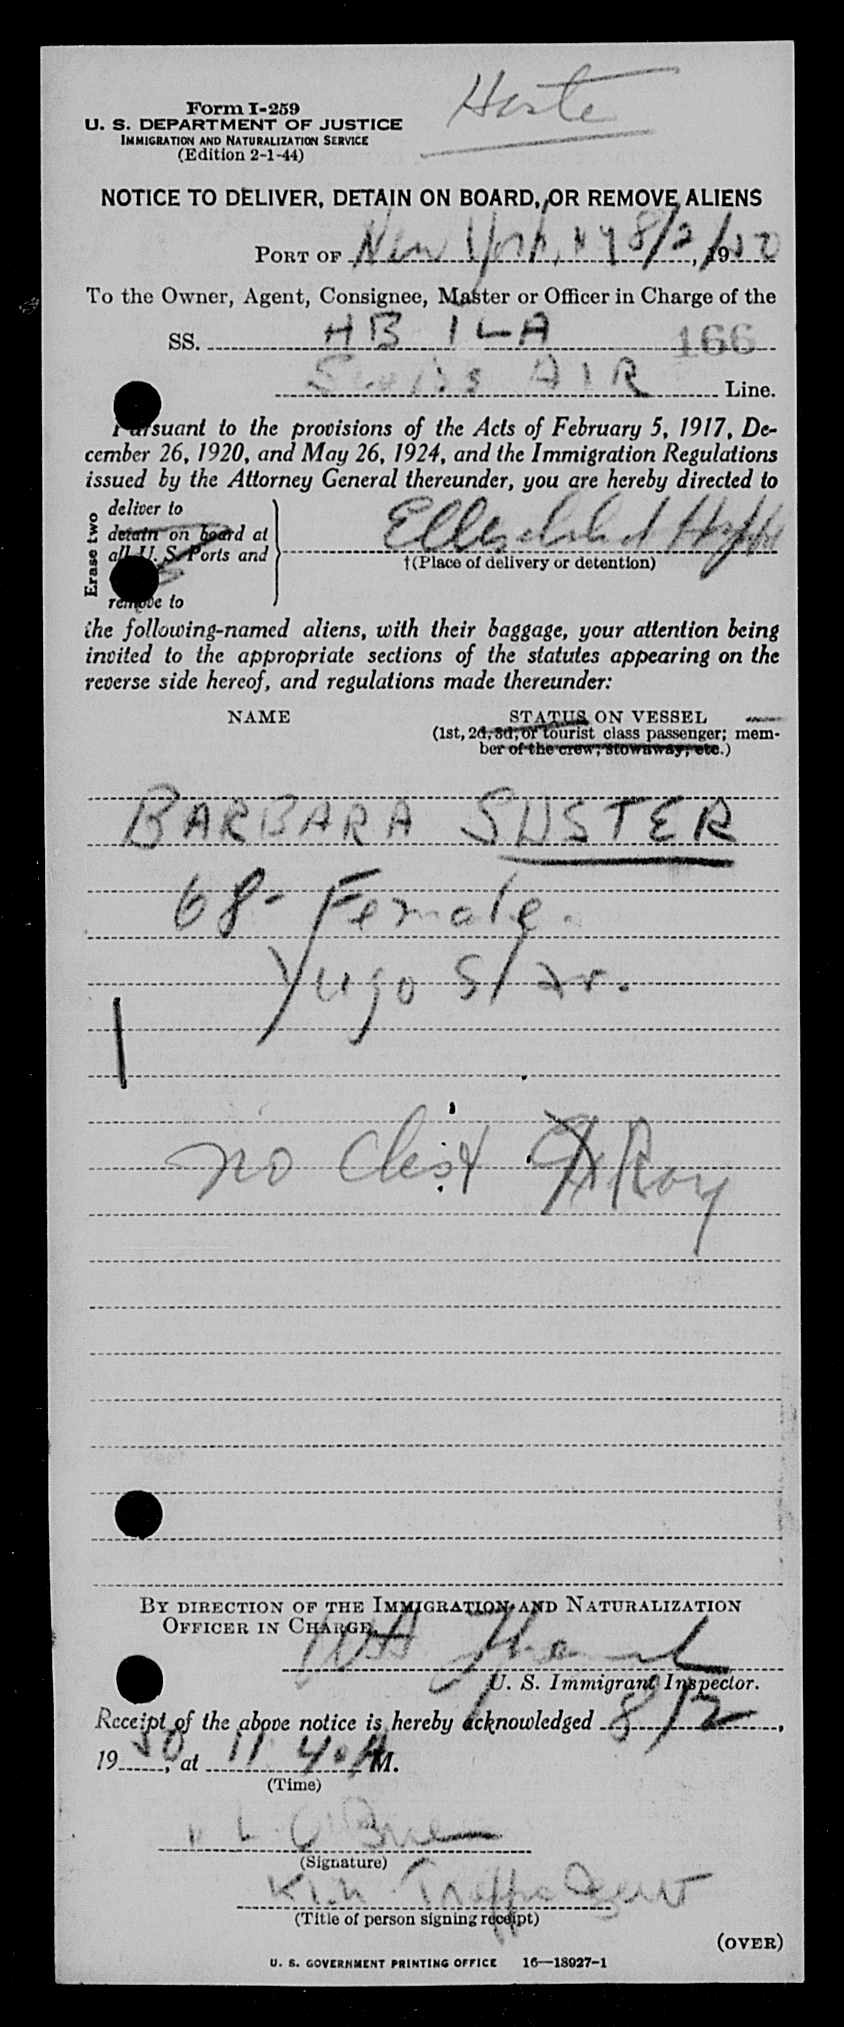 Form I-259
U. S. DEPARTMENT OF JUSTICE
IMMIGRATION AND NATURALIZATION SERVICE
(Edition 2-1-44)
NOTICE TO DELIVER, DETAIN ON BOARD, OR REMOVE ALIENS
PORT OF New York, NY 8/2, 1950
To the Owner, Agent, Consignee, Master or Officer in Charge of the
SS. HB ILA 166
Swiss AIR Line.
Pursuant to the provisions of the Acts of February 5, 1917, De-
cember 26, 1920, and May 26, 1924, and the Immigration Regulations
issued by the Attorney General thereunder, you are hereby directed to
Erase two
deliver to
detain on board at
all U. S. Ports and
remove to
†(Place of delivery or detention)
the following-named aliens, with their baggage, your attention being
invited to the appropriate sections of the statutes appearing on the
reverse side hereof, and regulations made thereunder:
NAME STATUS ON VESSEL
(1st, 2d, 3d, or tourist class passenger; mem-
ber of the crew, stowaway, etc.)
BARBARA SUSTER
68- Female.
Yugo Slav.
no Chest X Ray
BY DIRECTION OF THE IMMIGRATION AND NATURALIZATION
OFFICER IN CHARGE.
U. S. Immigrant Inspector.
Receipt of the above notice is hereby acknowledged 8/2,
1950, at 11 40 A M.
(Time)
O'Brien
(Signature)
KLM Traffic
(Title of person signing receipt)
(OVER)
U. S. GOVERNMENT PRINTING OFFICE 16—18927-1